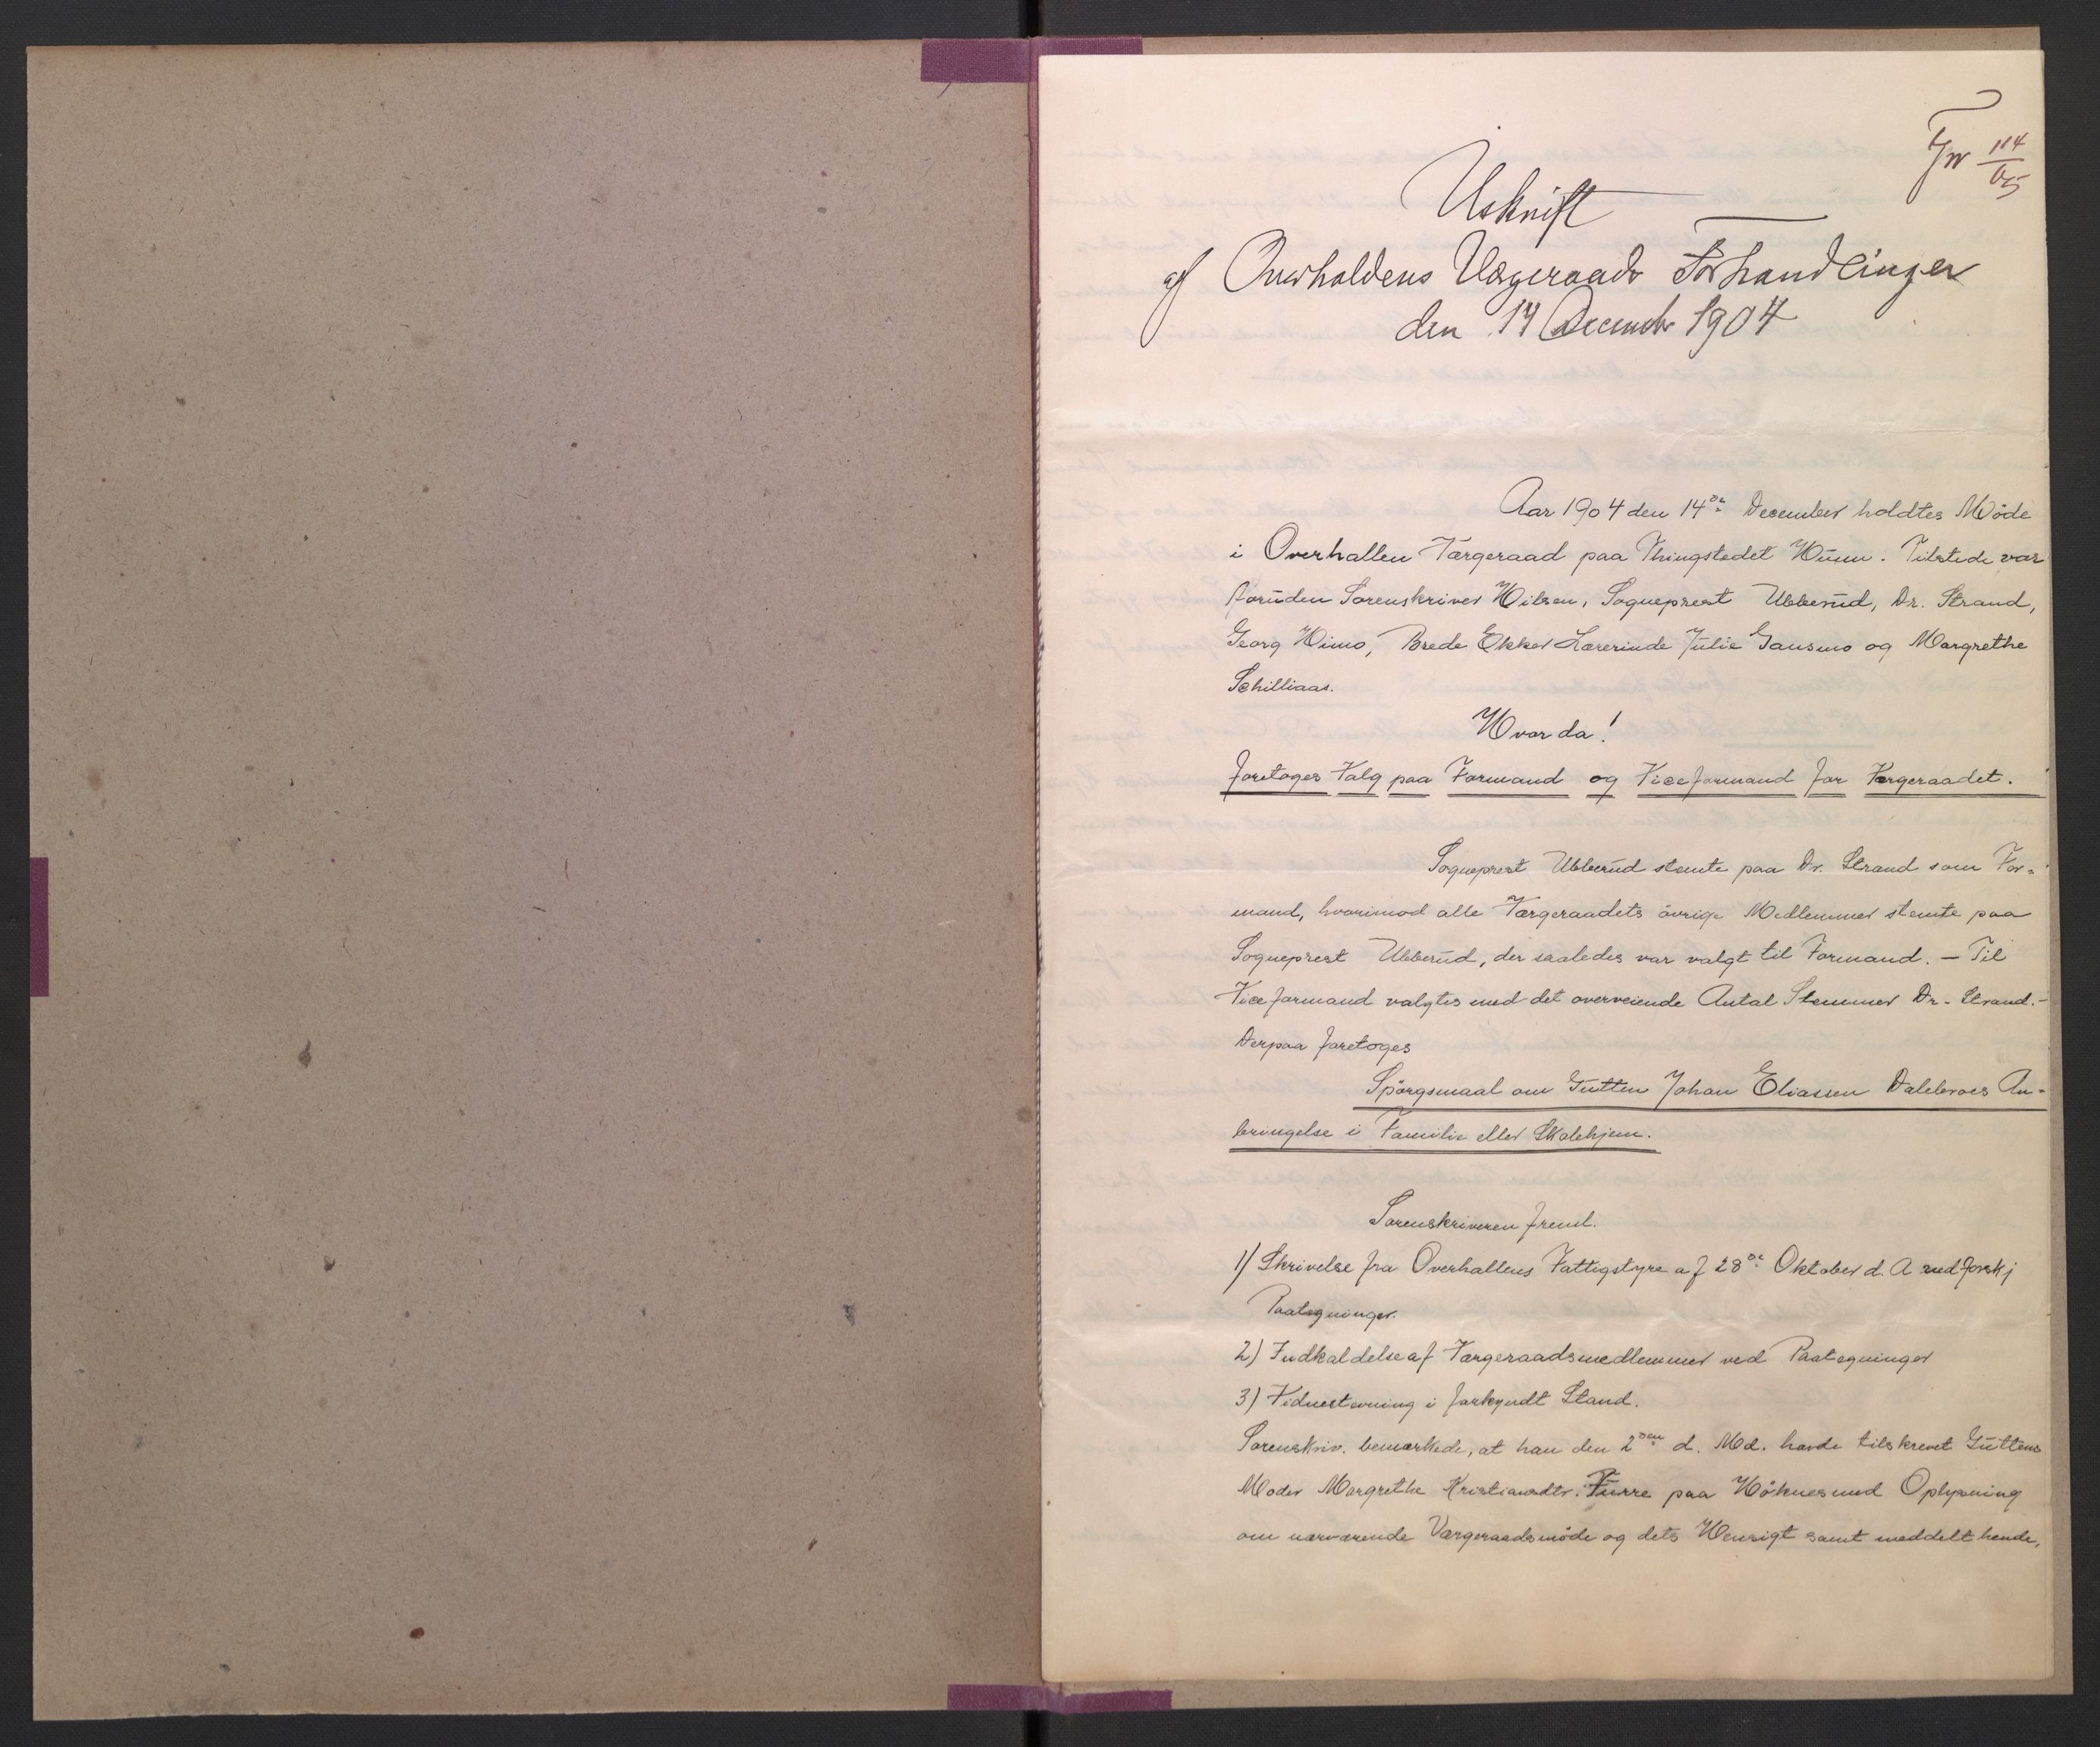 114
05
Uskrift
af Overhaldens Værgeraads Forhandlinger
den 14 Decembr 1904
Aar 1904 den 14de December holdtes Møde
i Overhallen Værgeraad paa Thingstedet Hunn. Tilstede var
foruden Sorenskriver Nilsen, Sogneprest Ubberud, Dr. Strand,
Georg Himo, Brede Ekker Lærerinde Julie Gansmo og Margrethe
Schilliaas.
Hvor da!
foretoges Valg paa Formand og Viceformand for Vergeraadet.
Sogneprest Ubberud stemte paa Dr. Strand som For-
mand, hvorimod alle Værgeraadets øvrige Medlemmer stemte paa
Sogneprest Ubberud, der saaledes var valgt til Formand. — Til
Viceformand valgtes med det overveiende Antal Stemmer Dr. Strand. -
Derpaa foretoges
Spørgsmaal om Gutten Johan Eliassen Dalebroes An-
bringelse i Familie eller Skolehjem.
Sorenskriveren freml.
1) Skrivelse fra Overhallens Fattigstyre af 28de Oktober d. A med forskj
Paategninger.
2) Indkaldelse af Værgeraadsmedlemmer ved Paategninger
3) Vidnestevning i forkyndt Stand.
Sorenskriv. bemærkede, at han den 2den d. Md. havde tilskrevet Guttens
Moder Margrethe Kristiansdtr. Furre paa Høknes med Oplysning
om nærværende Værgeraadsmøde og dets Hensigt samt meddelt hende,